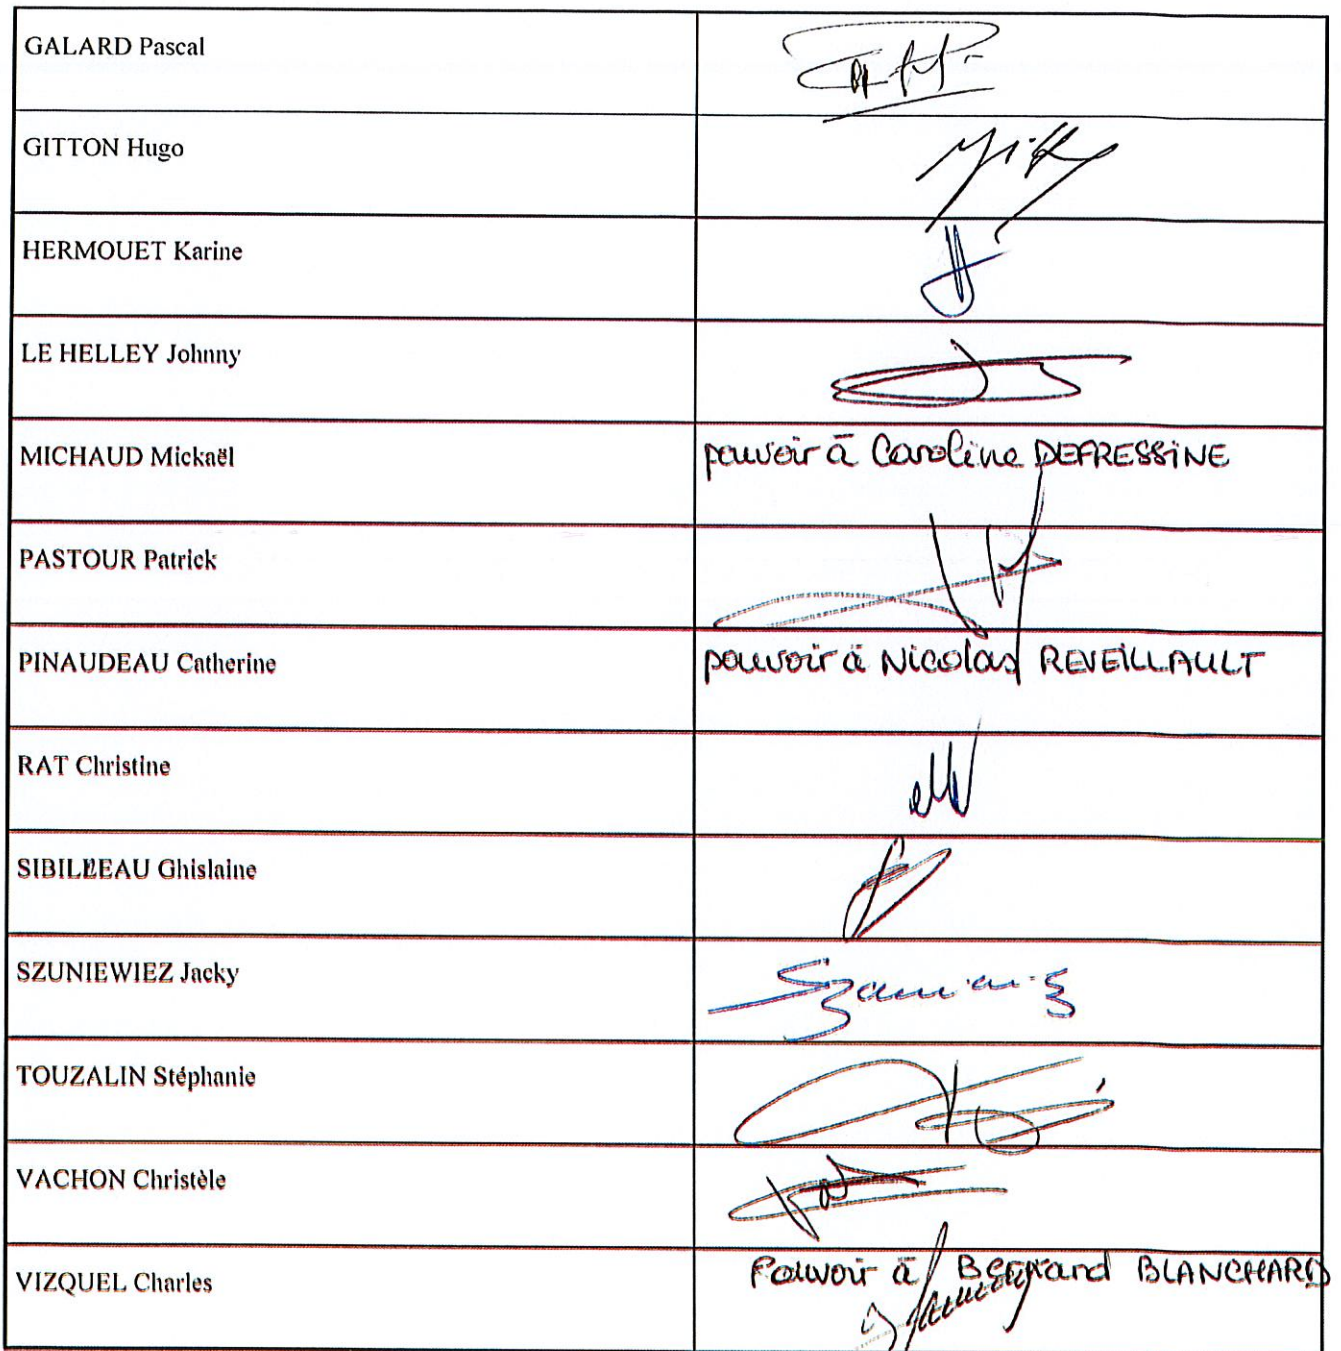 GALARD Pascal
GITTON Hugo
HERMOUET Karine
LE HELLEY Johnny
MICHAUD Mickaël pouvoir à Caroline DEFRESSINE
PASTOUR Patrick
PINAUDEAU Catherine pouvoir à Nicolas REVEILLAULT
RAT Christine
SIBILLEAU Ghislaine
SZUNIEWIEZ Jacky
TOUZALIN Stéphanie
VACHON Christèle
VIZQUEL Charles Pouvoir à Bertrand BLANCHARD